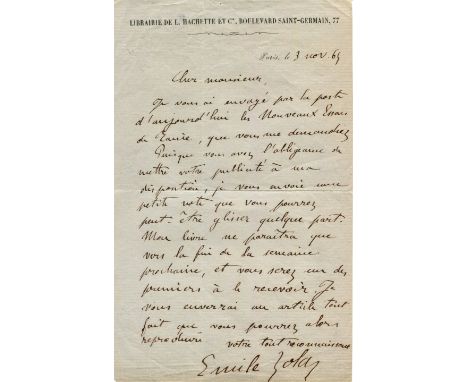 LIBRAIRIE DE L. HACHETTE ET Cie, BOULEVARD SAINT-GERMAIN, 77
Paris, le 3 nov 65
Cher monsieur,
Je vous ai envoyé par la poste
d'aujourd'hui les Nouveaux Essais
de Taine, que vous me demandez
Puisque vous avez l'obligeance de
mettre votre publicité à ma
disposition, je vous envoie une
petite note que vous pourrez
peut-être glisser quelque part.
Mon livre ne paraîtra que
vers la fin de la semaine
prochaine, et vous serez un des
premiers à le recevoir. Je
vous enverrai un article tout
fait que vous pourrez alors
reproduire
votre tout reconnaissant
Emile Zola